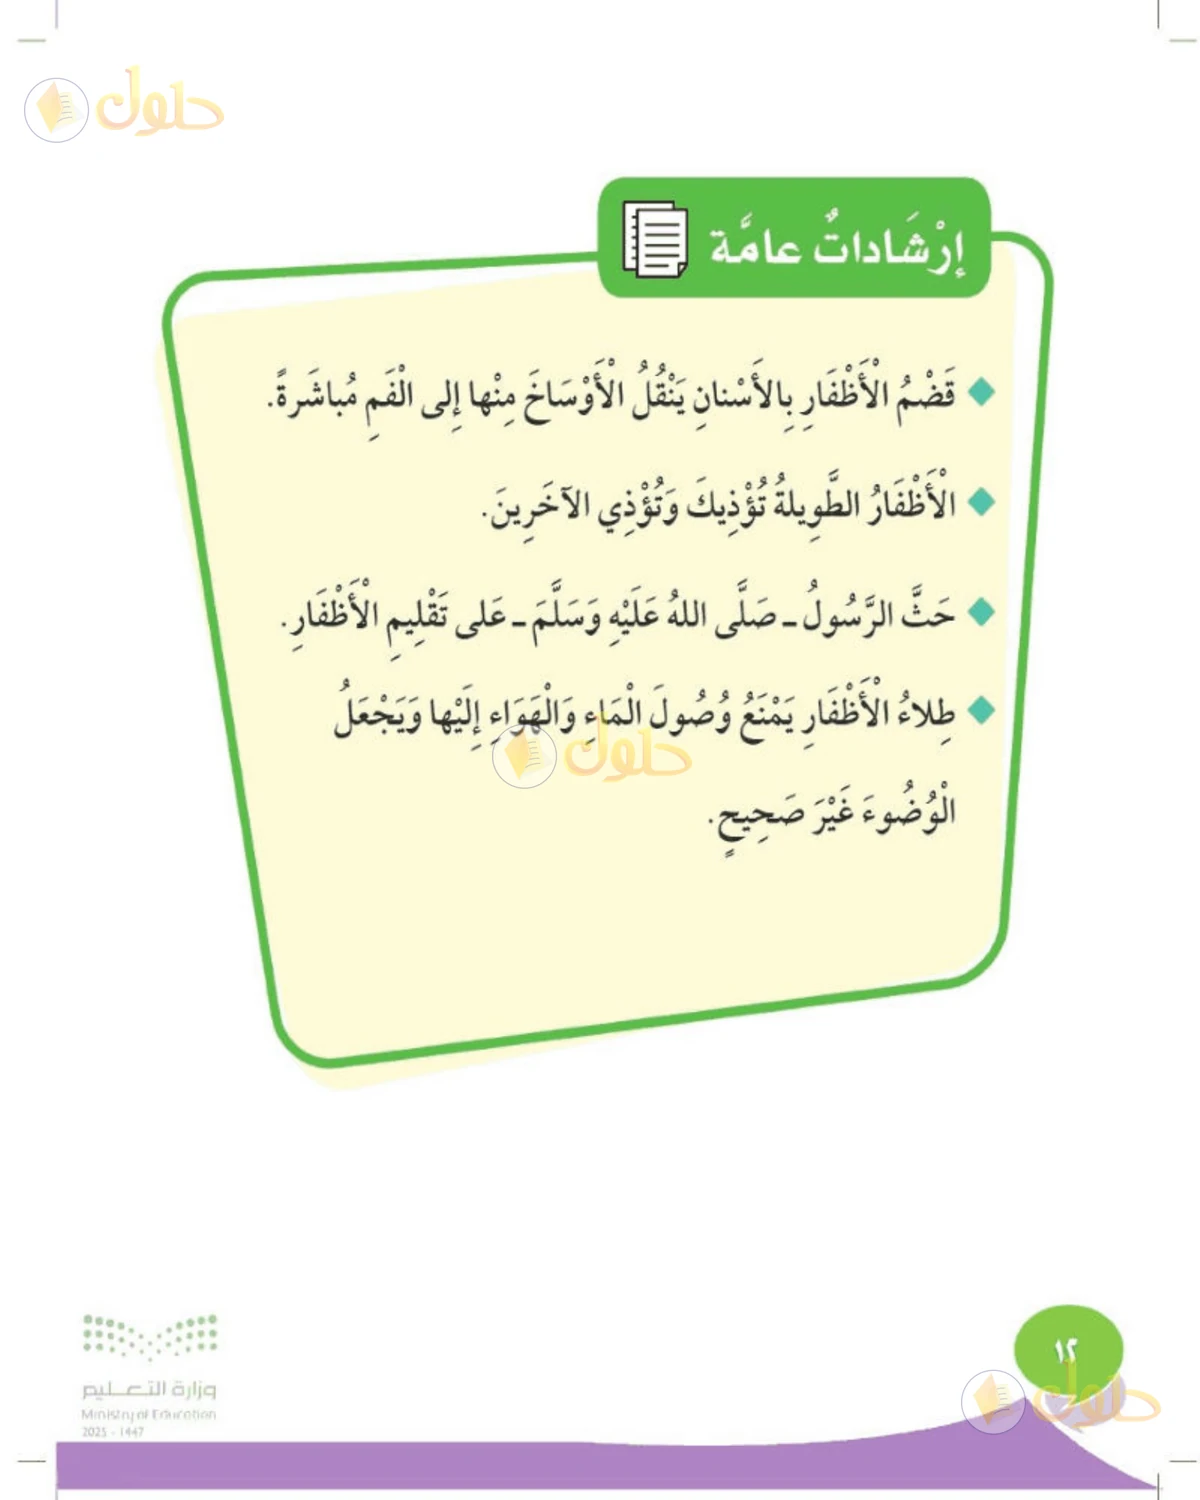 حلول
إِرْشَادَاتٌ عامَّة
قَضْمُ الْأَظْفَارِ بِالأَسْنانِ يَنْقُلُ الْأَوْسَاخَ مِنْها إِلى الْفَمِ مُباشَرةً.
الْأَظْفَارُ الطَّوِيلةُ تُؤْذِيكَ وَتُؤْذِي الآخَرِينَ.
حَثَّ الرَّسُولُ ـ صَلَّى اللهُ عَلَيْهِ وَسَلَّمَ ـ عَلى تَقْلِيمِ الْأَظْفَارِ.
طِلاءُ الْأَظْفَارِ يَمْنَعُ وُصُولَ الْمَاءِ وَالْهَوَاءِ إِلَيْها وَيَجْعَلُ
حلول
الْوُضُوءَ غَيْرَ صَحِيحٍ.
١٢
وزارة التعليم
Ministry of Education
2025 - 1447
حلول